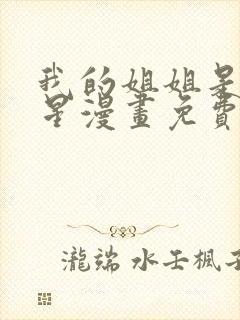 我的姐姐是
星漫畫免費
瀧端 水壬楓子